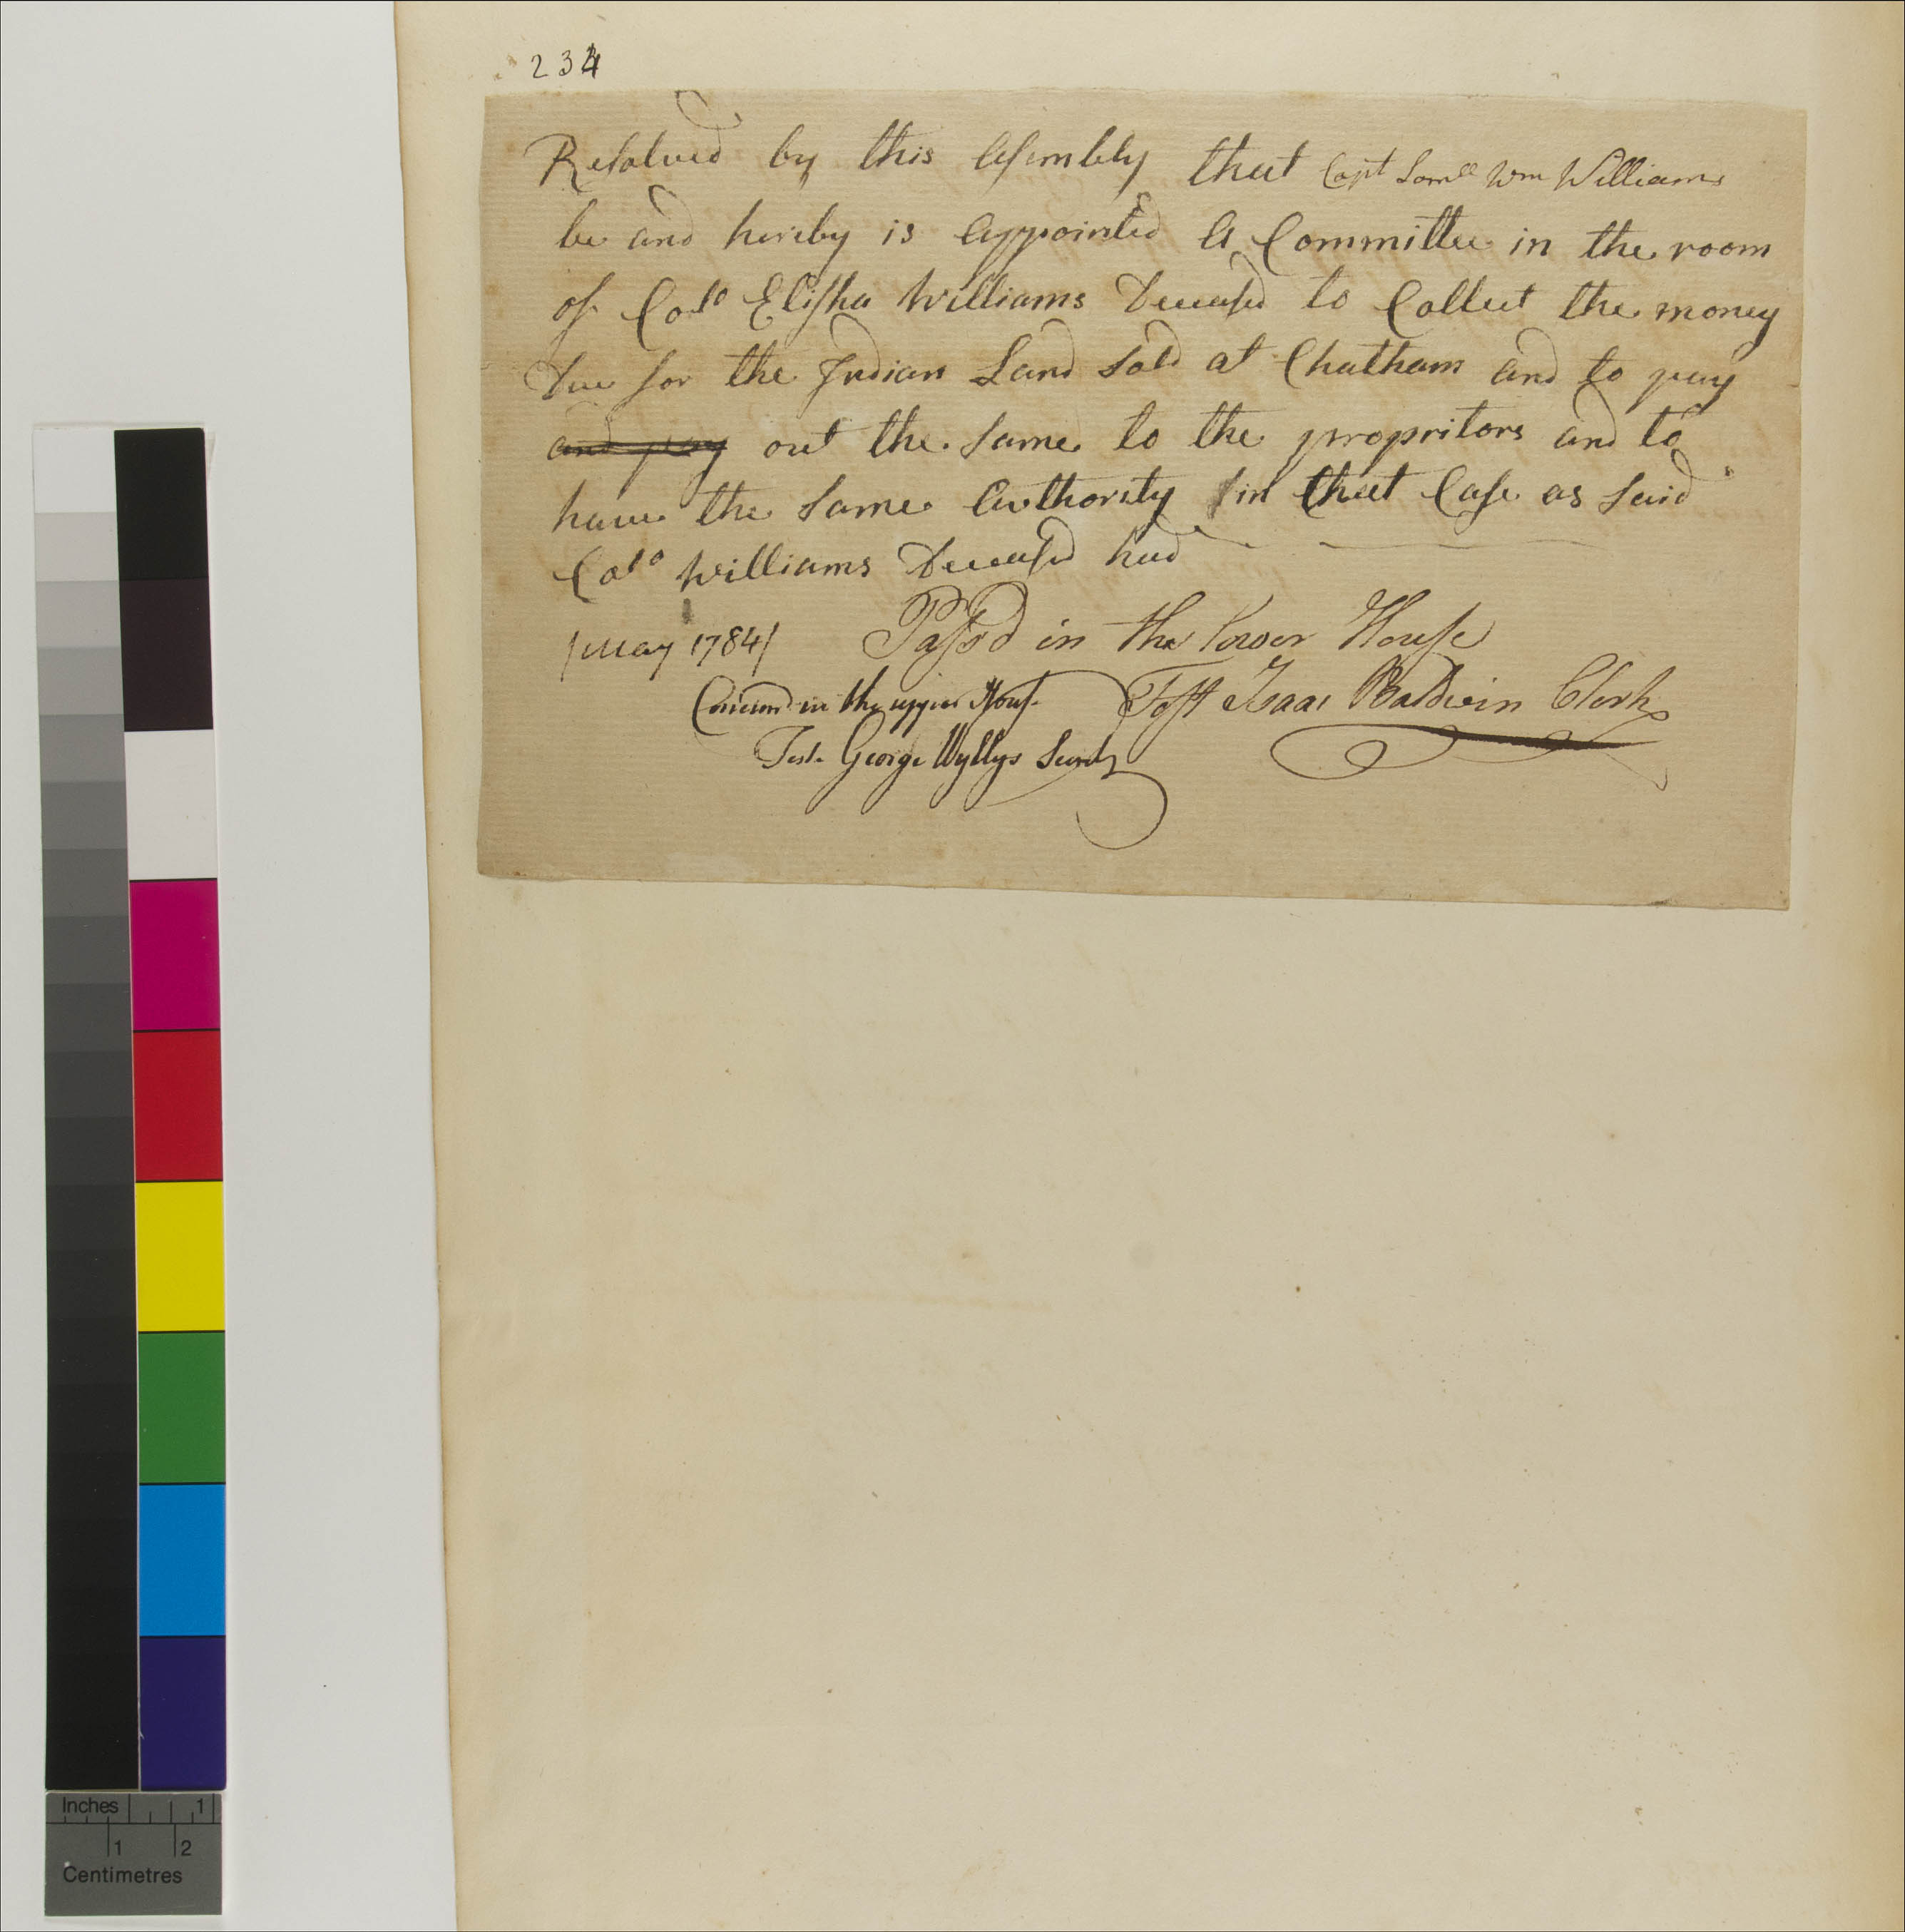 234
Resolved by this Assembly that Capt Samll Wm Williams
be and hereby is appointed A Committee in the room
of Colo Elisha Williams Deceased to Collect the money
Due for the Indian Land Sold at Chatham and to pay
and pay out the Same to the propritors and to
have the Same Authority in that Case as Said
Colo Williams Deceased had
/May 1784/ Passed in the Lower House
Test Isaac Baldwin Clerk
Concurrd in the upper House
Test. George Wyllys Secrety
Inches 1
1 2
Centimetres